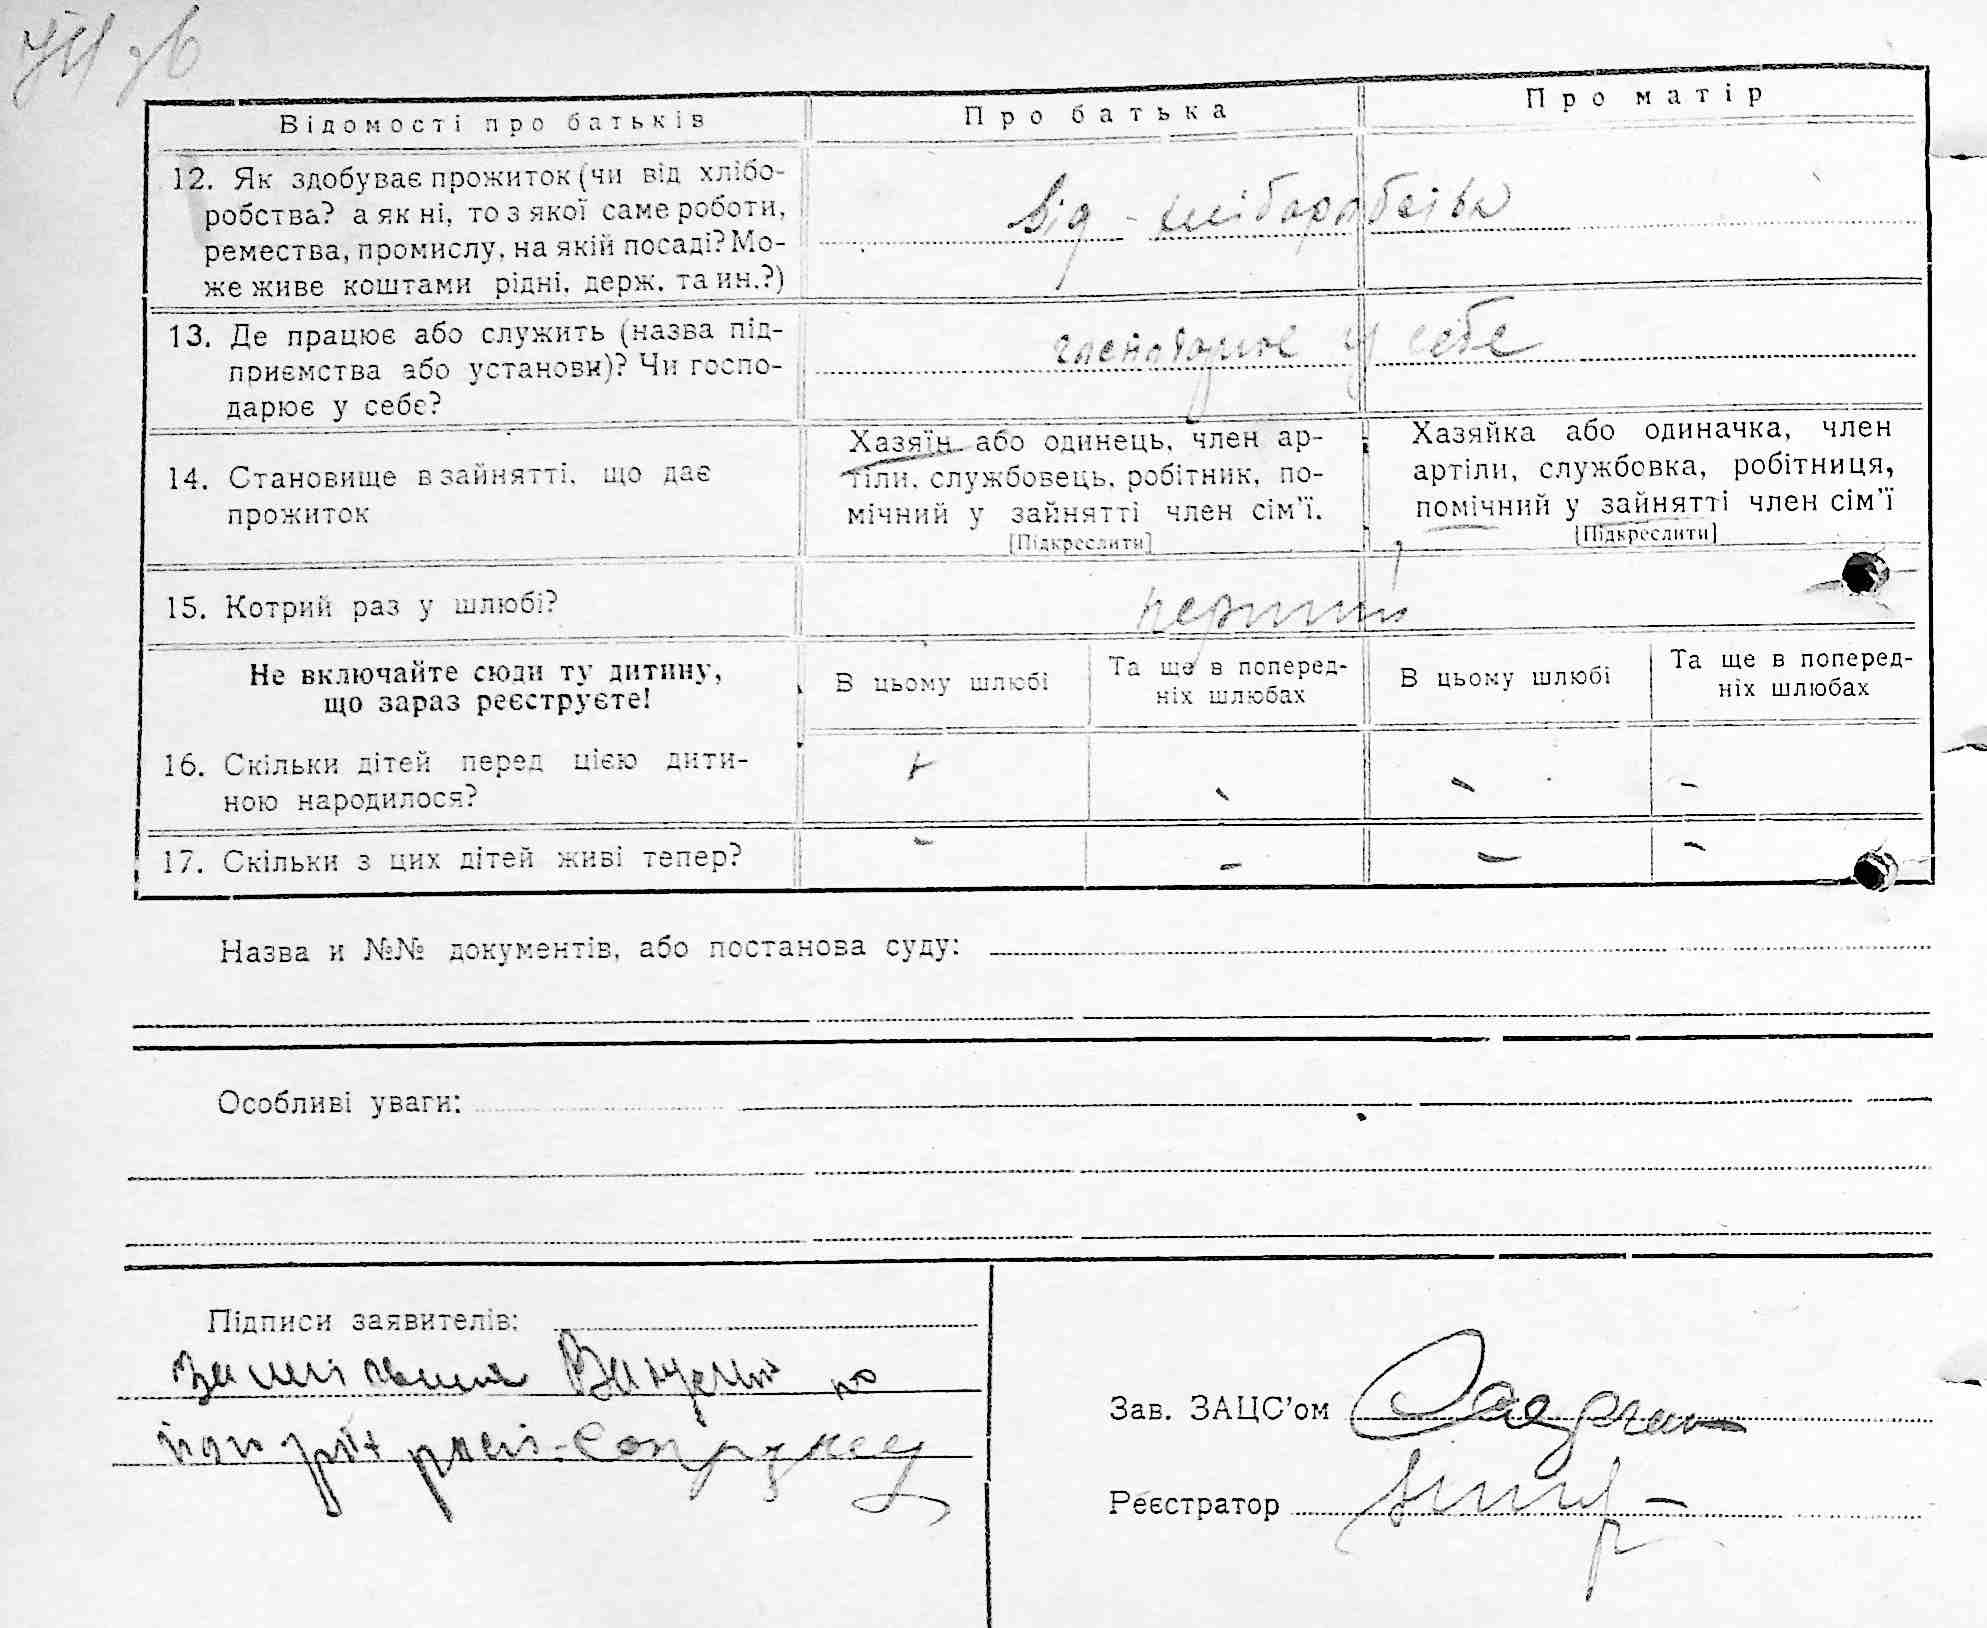 Відомості про батьків
Про батька
Про матір
12. Як здобуває прожиток (чи від хлібо-
робства? а як ні, то з якої саме роботи,
ремества, промислу, на якій посаді? Мо-
же живе коштами рідні, держ. та ин.?)
від - хліборобства
13. Де працює або служить (назва під-
приємства або установи)? Чи госпо-
дарює у себе?
господарює у себе
14. Становище в зайнятті, що дає
прожиток
Хазяїн або одинець, член ар-
тіли, службовець, робітник, по-
мічний у зайнятті член сім'ї.
[Підкреслити]
Хазяйка або одиначка, член
артіли, службовка, робітниця,
помічний у зайнятті член сім'ї
[Підкреслити]
15. Котрий раз у шлюбі?
перший
Не включайте сюди ту дитину,
що зараз реєструєте!
В цьому шлюбі
Та ще в поперед-
ніх шлюбах
В цьому шлюбі
Та ще в поперед-
ніх шлюбах
16. Скільки дітей перед цією дити-
ною народилося?
- - -
17. Скільки з цих дітей живі тепер?
- - - -
Назва и №№ документів, або постанова суду:
Особливі уваги:
Підписи заявителів:
по
Зав. ЗАЦС'ом
Реєстратор